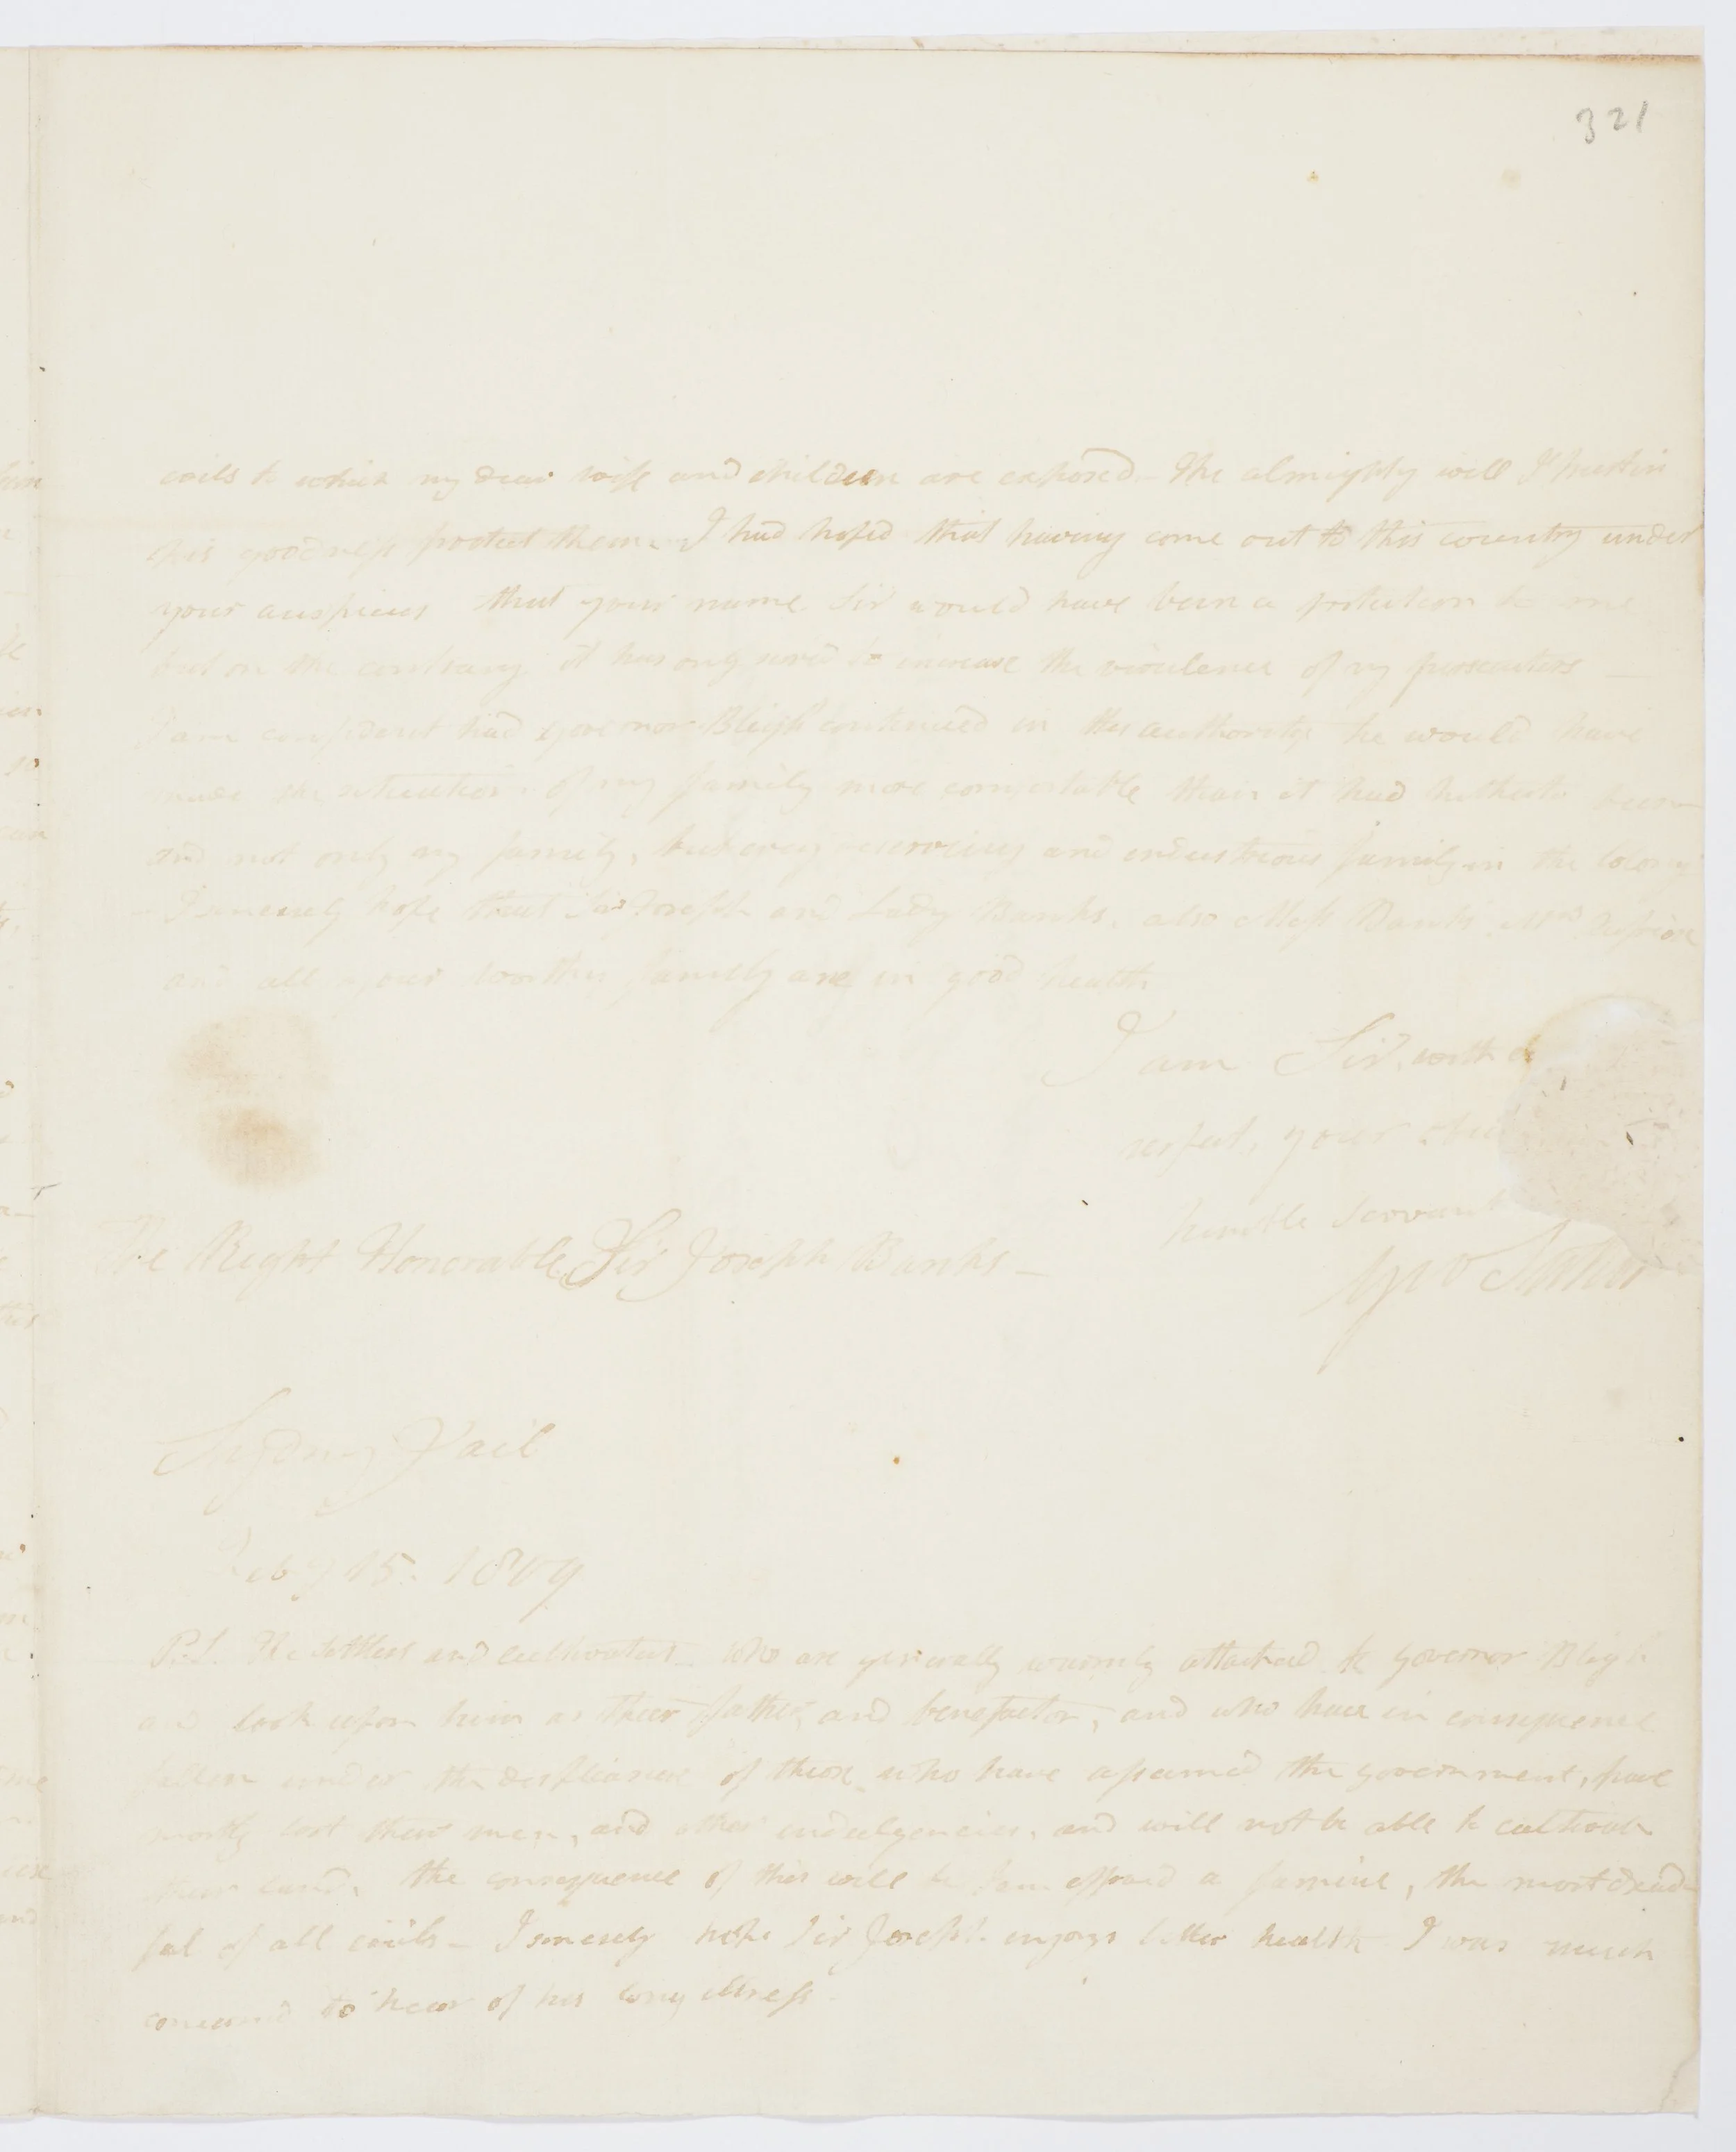 321
evils to which my dear wife and children are exposed – the almighty will I trust in
his goodness protect them. I had hoped that having come out to this country under
your auspices that your name Sir would have been a protection to me
but on the contrary it has only served to increase the virulence of my persecutors –
I am confident had governor Bligh continued in his authority he would have
made the situation of my family more comfortable than it had hitherto been
and not only my family, but every deserving and industrious family in the colony
– I sincerely hope that Sir Joseph and Lady Banks, also Miss Banks Mrs
and all your worthy family are in good health
I am Sir, with
respect, your
humble servant
The Right Honorable Sir Joseph Banks –
Sydney Jail
Feby 15. 1809
P.S. The settlers and cultivators who are generally warmly attached to governor Bligh
and look upon him as their father, and benefactor, and who have in consequence
fallen under the displeasure of those who have assumed the government, have
mostly lost their men, and other indulgencies, and will not be able to cultivate
their land, the consequence of this will be I am affraid a famine, the most dread
ful of all evils – I sincerely hope Sir Joseph enjoys better health I was much
concerned to hear of his long illness.